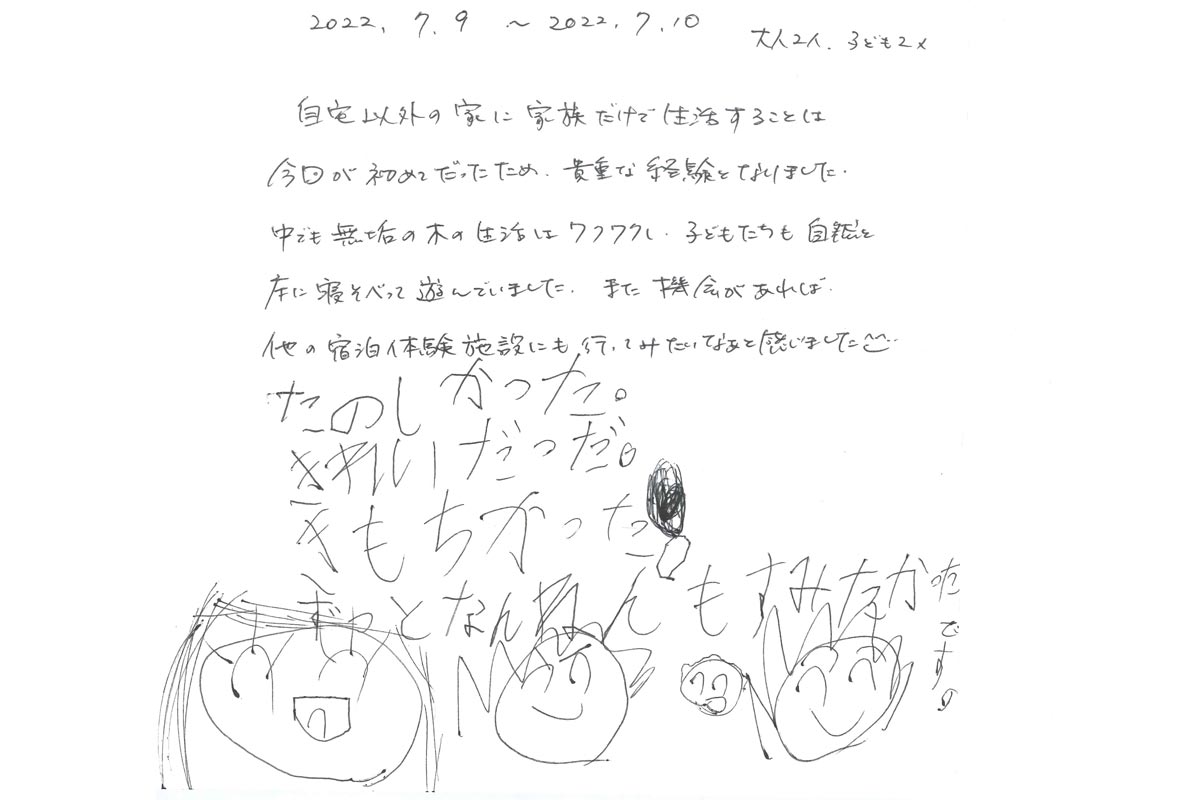 2022. 7. 9 ～ 2022. 7. 10
大人2人. 子ども2人
自宅以外の家に家族だけで生活することは
今回が初めてだったため、貴重な経験となりました.
中でも無垢の木の生活はワクワクし、子どもたちも自然と
床に寝そべって遊んでいました. また機会があれば.
他の宿泊体験施設にも行ってみたいなぁと感じました^^
たのしかった。
きれいだっだ。
きもちかった。
ずっとなんねんもすみたかったです。